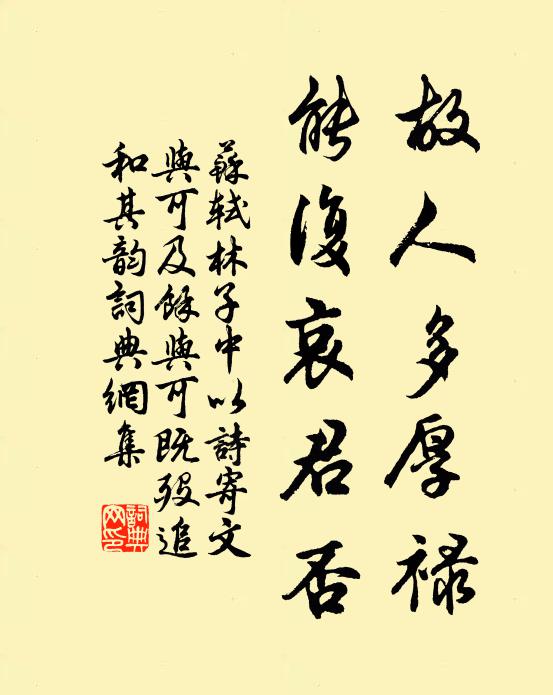 故人多厚禄
能復哀君否
蘇軾林子中以詩寄文
與可及餘與可既歿追
和其韵詞典網集
詞典網印